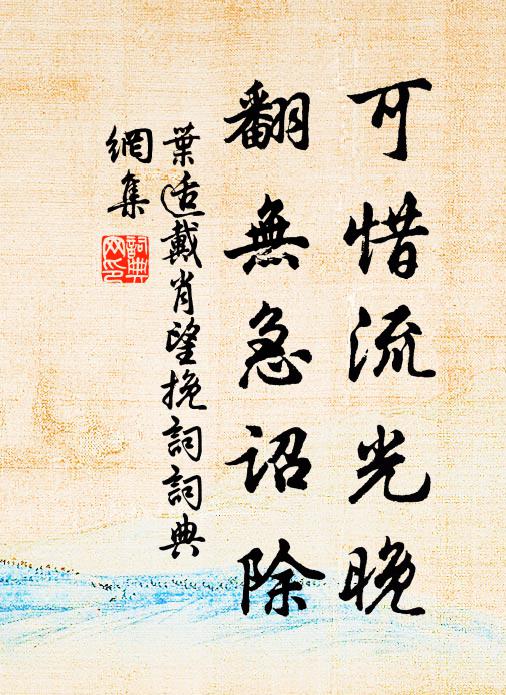 可惜流光晚
翻無急詔除
葉适戴肖望挽詞詞典
網集
詞典
网印